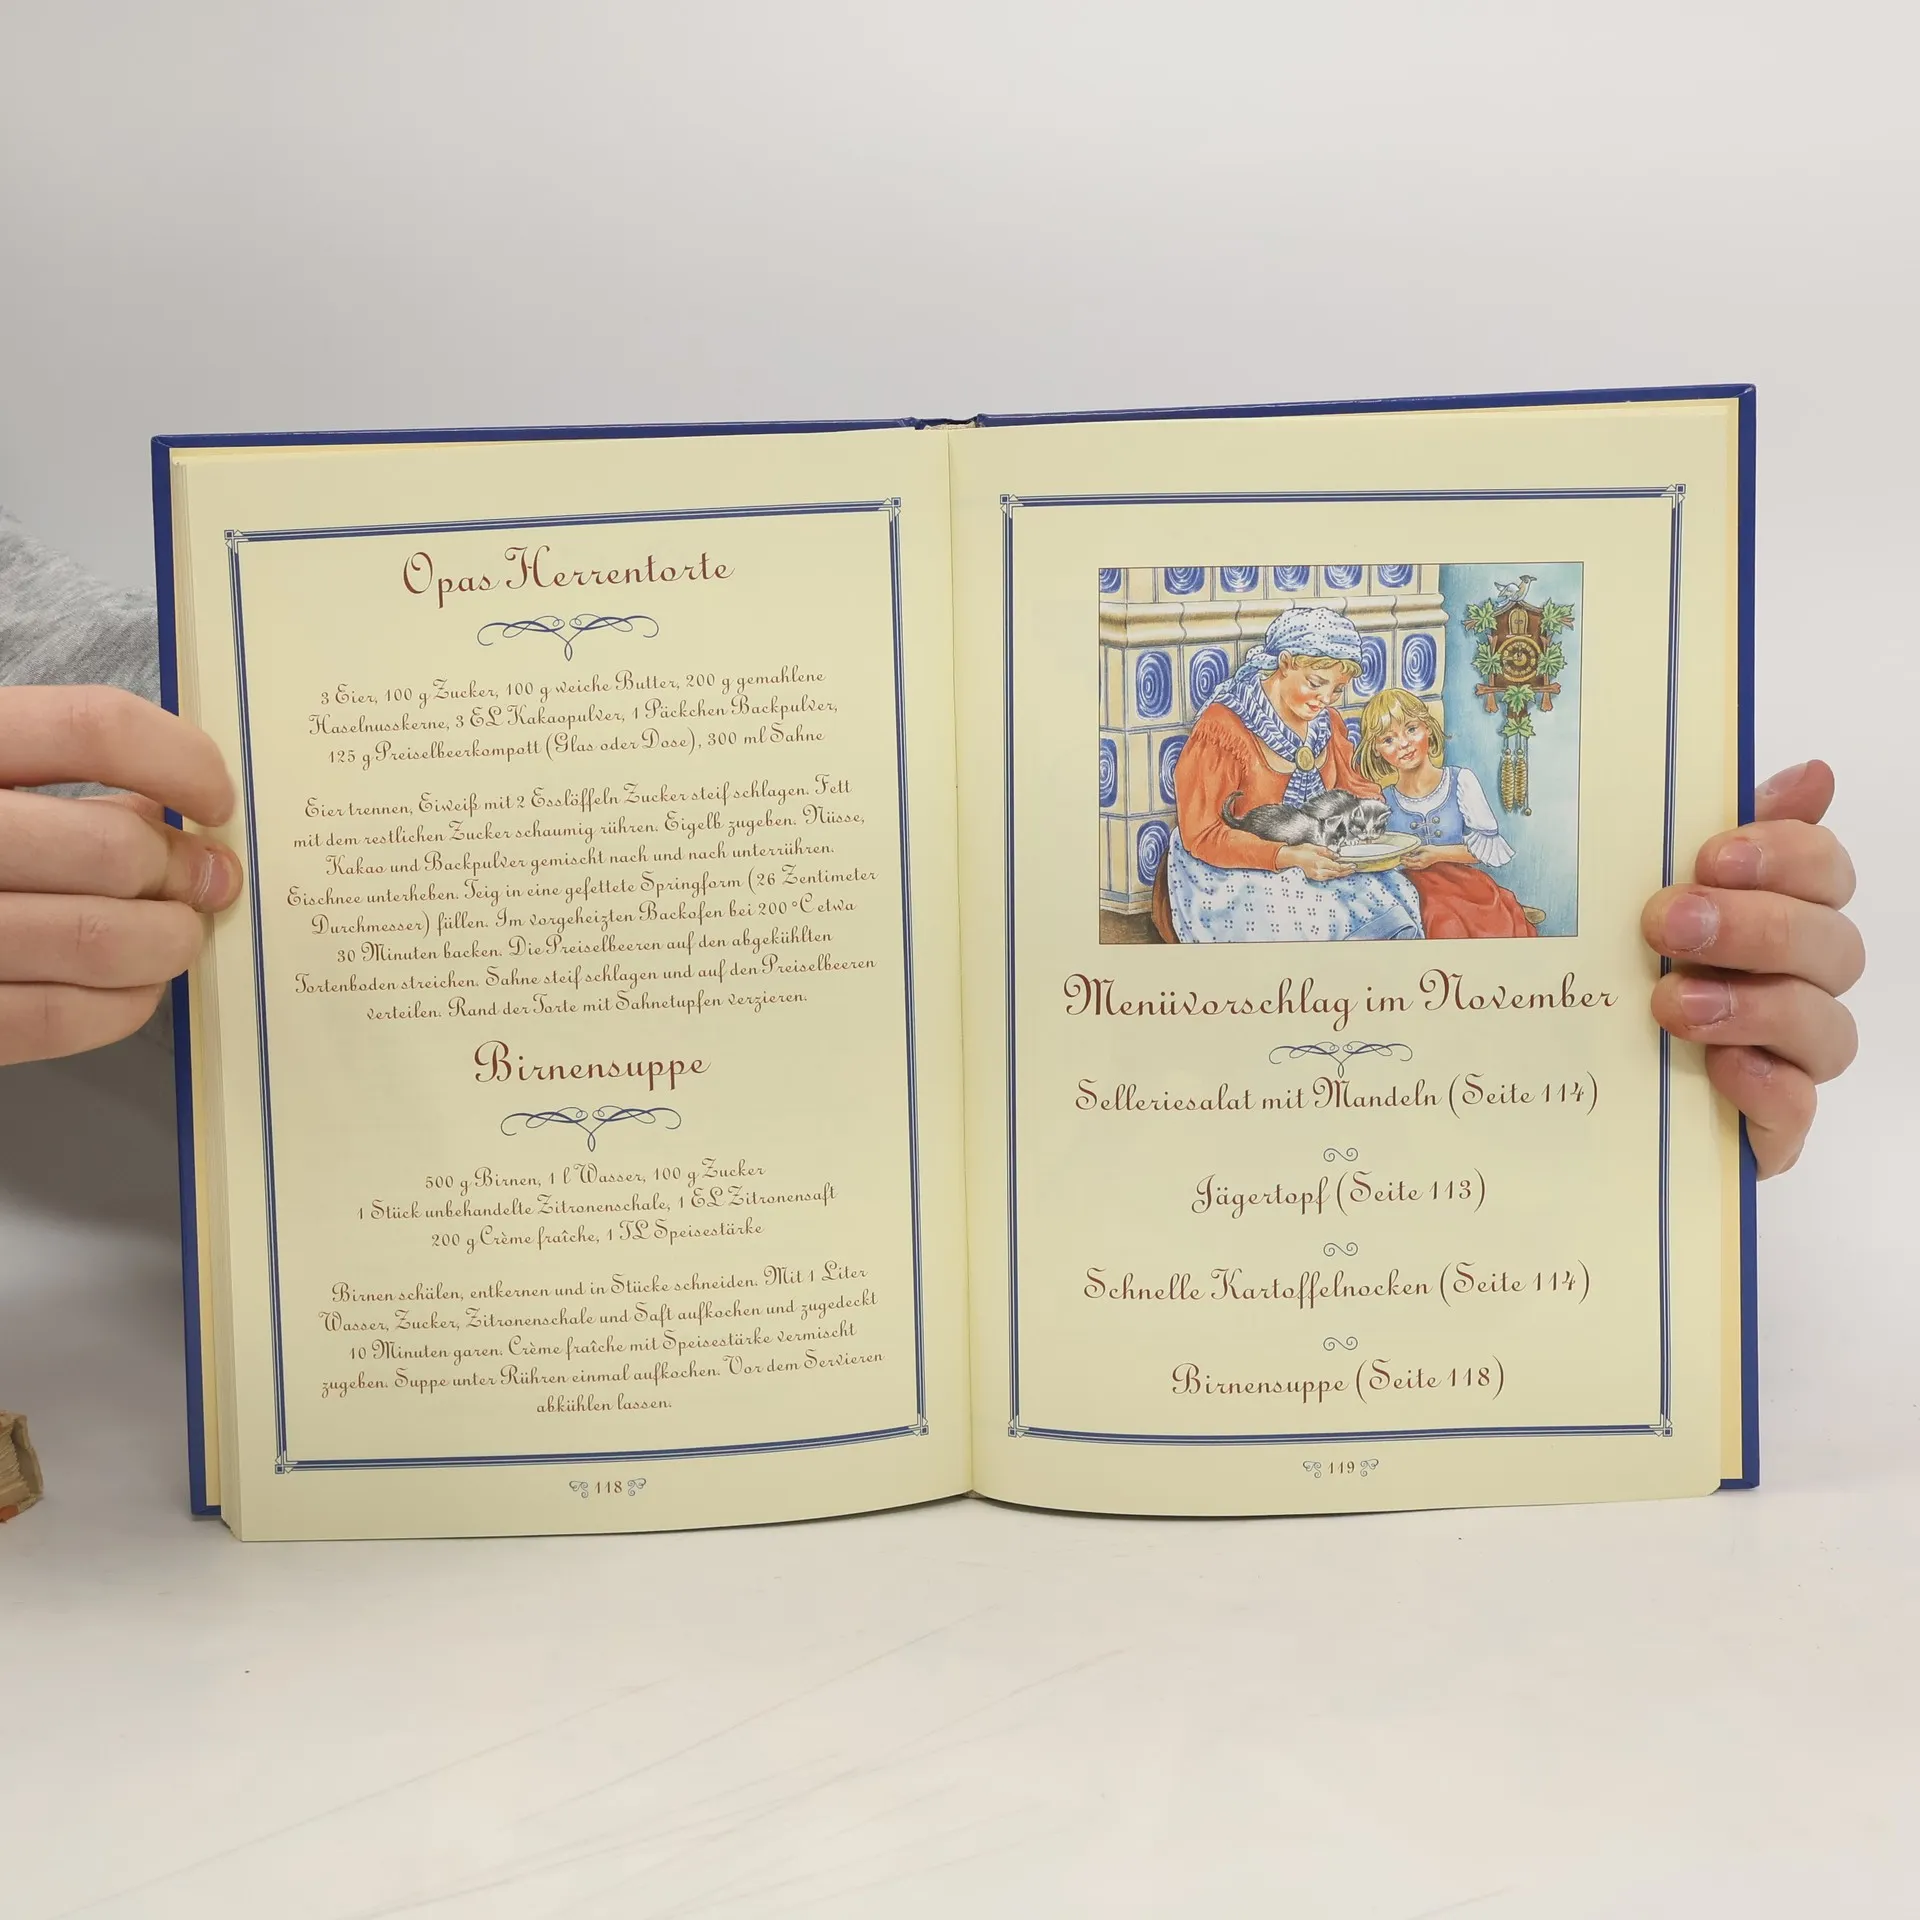 Opas Herrentorte
3 Eier, 100 g Zucker, 100 g weiche Butter, 200 g gemahlene
Haselnusskerne, 3 EL Kakaopulver, 1 Päckchen Backpulver,
125 g Preiselbeerkompott (Glas oder Dose), 300 ml Sahne
Eier trennen, Eiweiß mit 2 Esslöffeln Zucker steif schlagen. Fett
mit dem restlichen Zucker schaumig rühren. Eigelb zugeben. Nüsse,
Kakao und Backpulver gemischt nach und nach unterrühren.
Eischnee unterheben. Teig in eine gefettete Springform (26 Zentimeter
Durchmesser) füllen. Im vorgeheizten Backofen bei 200 °C etwa
30 Minuten backen. Die Preiselbeeren auf den abgekühlten
Tortenboden streichen. Sahne steif schlagen und auf den Preiselbeeren
verteilen. Rand der Torte mit Sahnetupfen verzieren.
Birnensuppe
500 g Birnen, 1 l Wasser, 100 g Zucker
1 Stück unbehandelte Zitronenschale, 1 EL Zitronensaft
200 g Crème fraîche, 1 TL Speisestärke
Birnen schälen, entkernen und in Stücke schneiden. Mit 1 Liter
Wasser, Zucker, Zitronenschale und Saft aufkochen und zugedeckt
10 Minuten garen. Crème fraîche mit Speisestärke vermischt
zugeben. Suppe unter Rühren einmal aufkochen. Vor dem Servieren
abkühlen lassen.
118
Menüvorschlag im November
Selleriesalat mit Mandeln (Seite 114)
Jägertopf (Seite 113)
Schnelle Kartoffelnocken (Seite 114)
Birnensuppe (Seite 118)
119